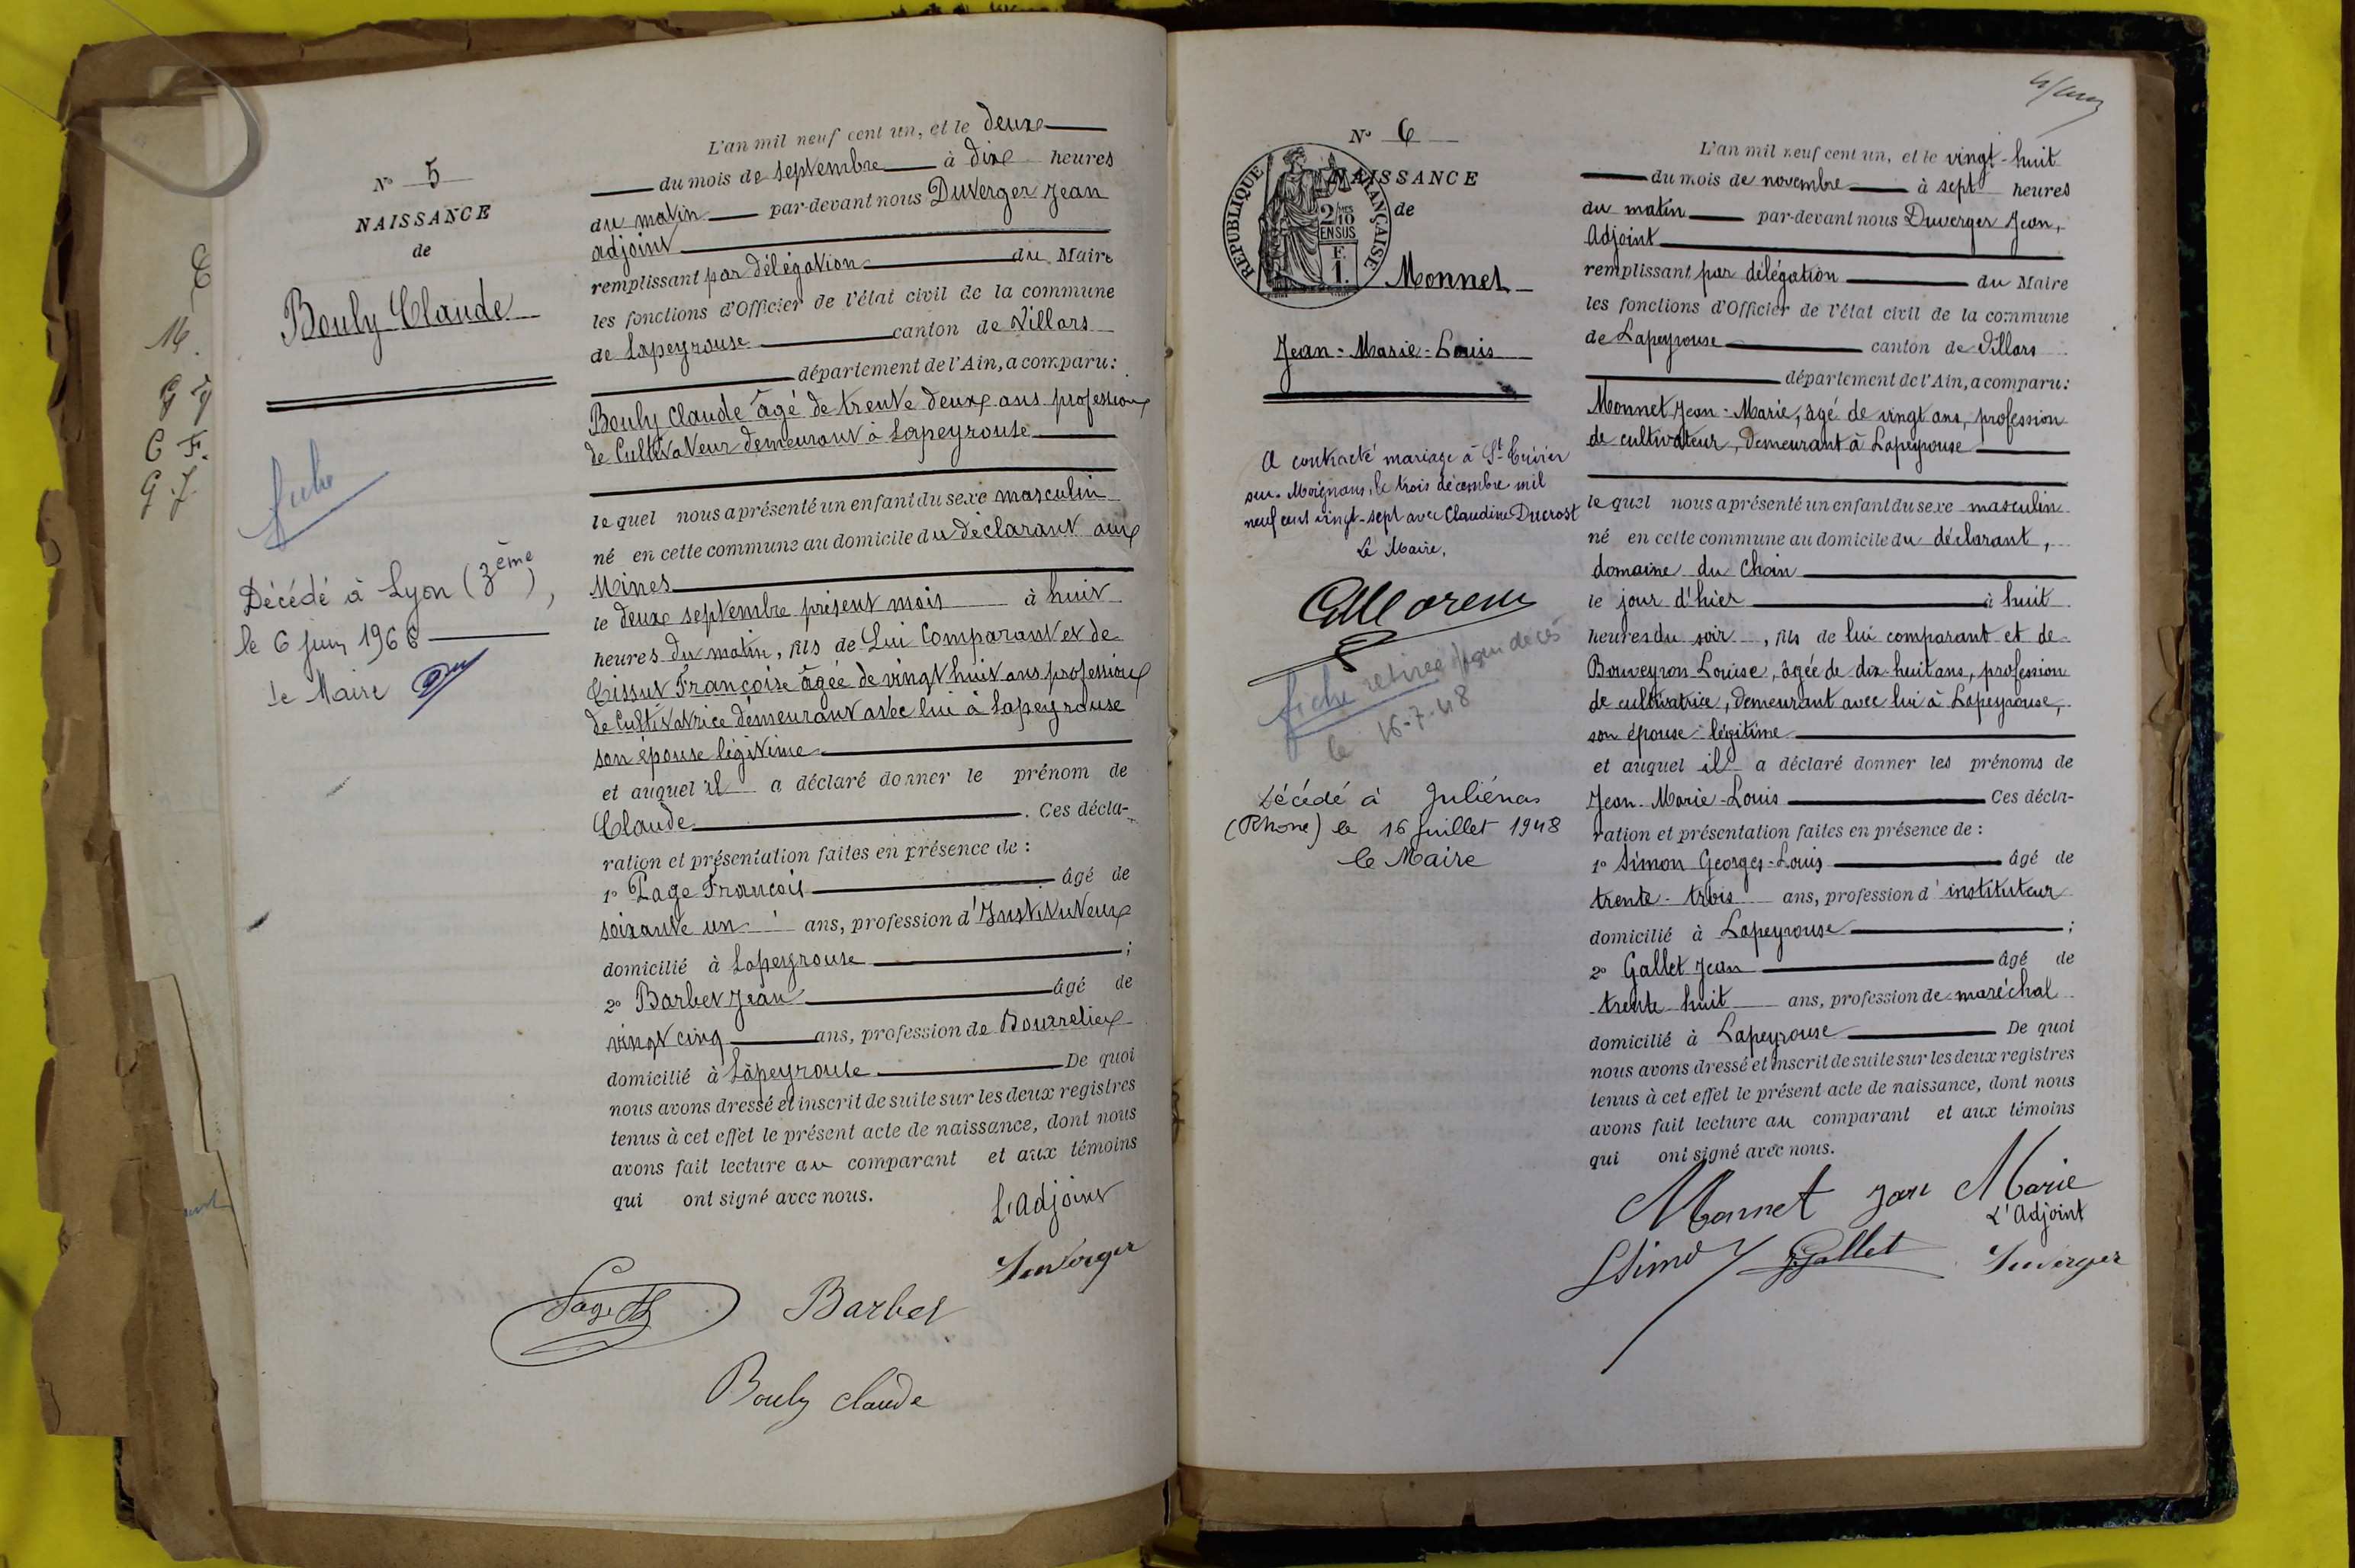 N° 5
NAISSANCE
de
Bouly Claude
fiche
Décédé à Lyon (3ème),
le 6 juin 1966
Le Maire
L'an mil neuf cent un, et le deux
du mois de septembre à dix heures
du matin par-devant nous Duverger Jean
adjoint
remplissant par délégation du Maire
les fonctions d'Officier de l'état civil de la commune
de Lapeyrouse canton de Villars
département de l'Ain, a comparu:
Bouly Claude âgé de trente deux ans profession
de Cultivateur demeurant à Lapeyrouse
le quel nous a présenté un enfant du sexe masculin
né en cette commune au domicile du déclarant aux
Mines
le deux septembre présent mois à huit
heures du matin, fils de Lui Comparant et de
Françoise âgée de vingt huit ans profession
de Cultivatrice demeurant avec lui à Lapeyrouse
son épouse légitime
et auquel il a déclaré donner le prénom de
Claude. Ces décla-
ration et présentation faites en présence de :
1° Page François âgé de
soixante un ans, profession d'Instituteur
domicilié à Lapeyrouse ;
2° Barbet Jean âgé de
vingt cinq ans, profession de Bourrelier
domicilié à Lapeyrouse De quoi
nous avons dressé et inscrit de suite sur les deux registres
tenus à cet effet le présent acte de naissance, dont nous
avons fait lecture au comparant et aux témoins
qui ont signé avec nous.
L'adjoint
Duverger
Page
Barbet
Bouly Claude
N° 6
NAISSANCE
de
REPUBLIQUE FRANÇAISE
2/10 EN SUS
F. 1.
Monnet
Jean-Marie-Louis
A contracté mariage à St Trivier
sur-Moignans, le trois décembre mil
neuf cent vingt-sept avec Claudine Ducrost
Le Maire,
fiche retirée
le 16-7-48
Décédé à Juliénas
(Rhône) le 16 juillet 1948
le Maire
L'an mil neuf cent un, et le vingt-huit
du mois de novembre à sept heures
du matin par-devant nous Duverger Jean,
Adjoint
remplissant par délégation du Maire
les fonctions d'Officier de l'état civil de la commune
de Lapeyrouse canton de Villars
département de l'Ain, a comparu:
Monnet Jean-Marie, âgé de vingt ans, profession
de cultivateur, demeurant à Lapeyrouse
le quel nous a présenté un enfant du sexe masculin
né en cette commune au domicile du déclarant,
domaine du Choin
le jour d'hier à huit
heures du soir, fils de lui comparant et de
Bouveyron Louise, âgée de dix-huit ans, profession
de cultivatrice, demeurant avec lui à Lapeyrouse,
son épouse légitime
et auquel il a déclaré donner les prénoms de
Jean-Marie-Louis Ces décla-
ration et présentation faites en présence de :
1° Simon Georges-Louis âgé de
trente-trois ans, profession d'instituteur
domicilié à Lapeyrouse ;
2° Gallet Jean âgé de
trente huit ans, profession de maréchal
domicilié à Lapeyrouse De quoi
nous avons dressé et inscrit de suite sur les deux registres
tenus à cet effet le présent acte de naissance, dont nous
avons fait lecture au comparant et aux témoins
qui ont signé avec nous.
Monnet Jean Marie
L'Adjoint
Simon JGallet Duverger